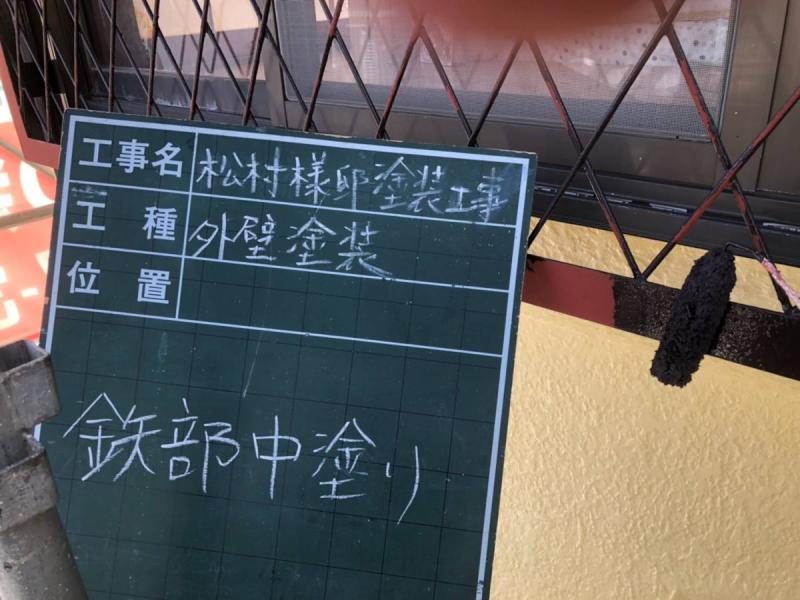 工事名 松村様邸塗装工事
工種 外壁塗装
位置
鉄部中塗り